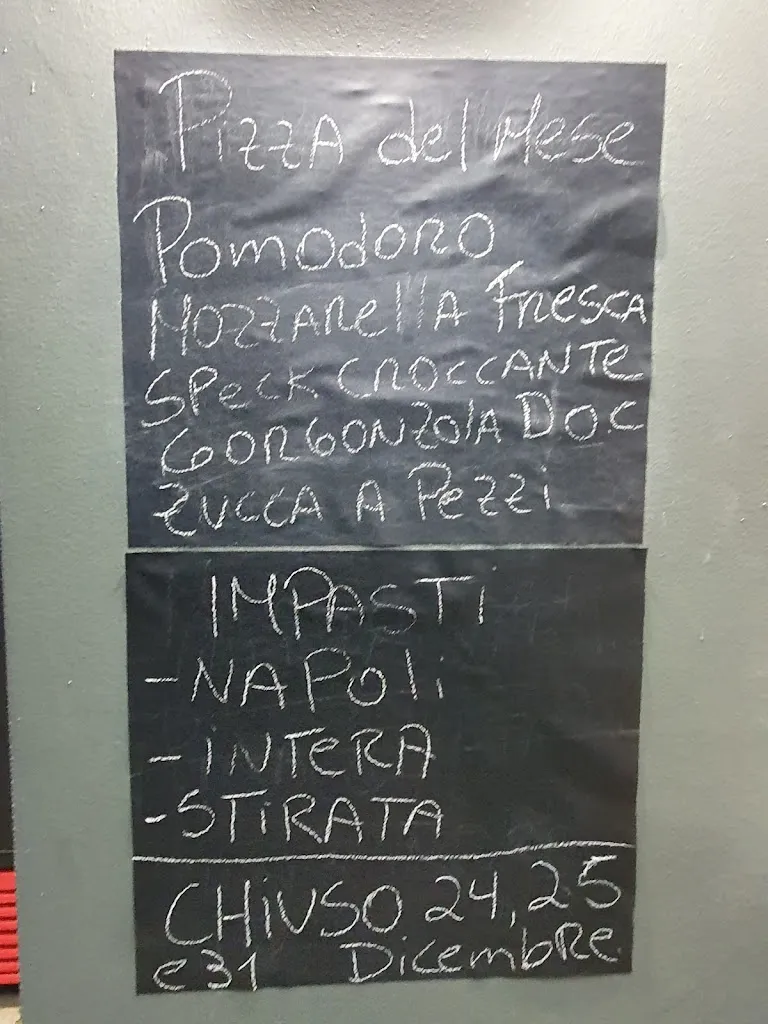 PiZZA del Mese
Pomodoro
MOZZARellA FRESCA
SPeCK CROCCANTE
GORGONZOlA D.O.C
ZUCCA A PeZZi
IMPASTi
-NAPOli
-iNTeRA
-STiRATA
CHiUSO 24, 25
e 31 DicembRe